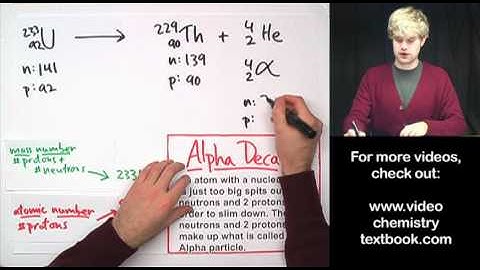 233 92 U → 229 90 Th + 4 2 He
n: 141 n: 139 4 2 α
p: 92 p: 90 n:
p:
mass number
# protons +
# neutrons
233
atomic number
# protons
Alpha Deca
an atom with a nucle
is just too big spits ou
neutrons and 2 protons
order to slim down. The
neutrons and 2 protons
make up what is called
Alpha particle.
For more videos,
check out:
www.video
chemistry
textbook.com